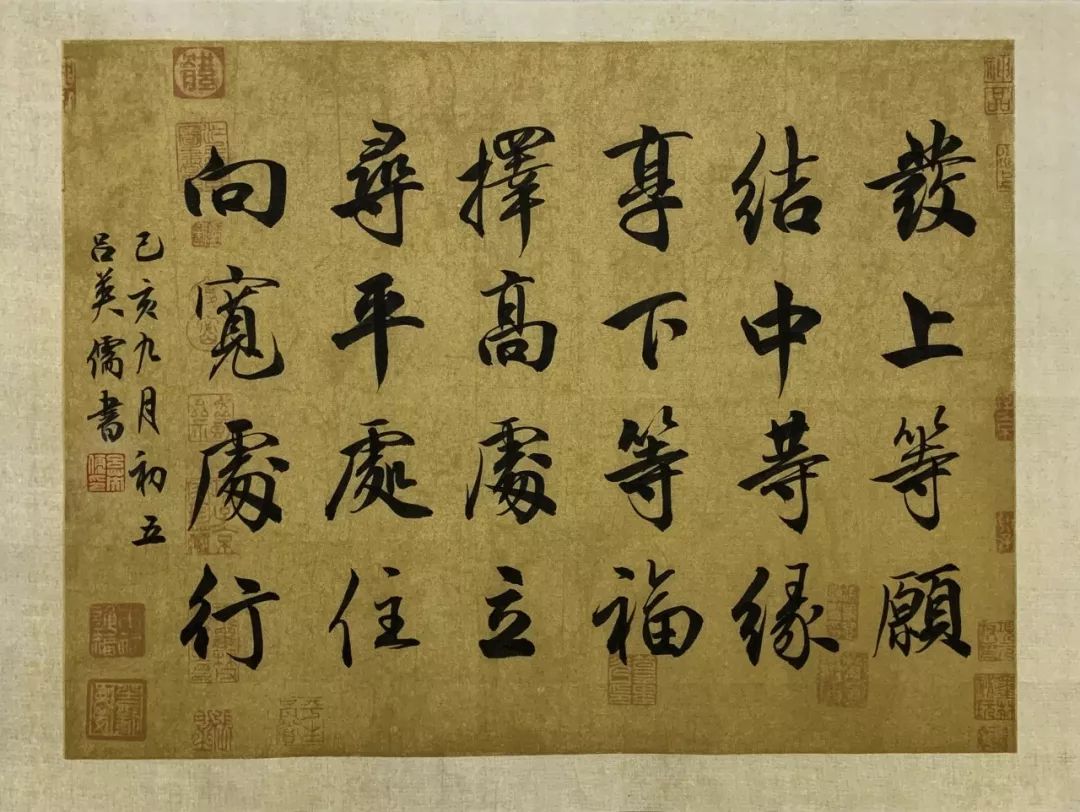 發上等願
結中等緣
享下等福
擇高處立
尋平處住
向寬處行
己亥九月初五
呂英儒書